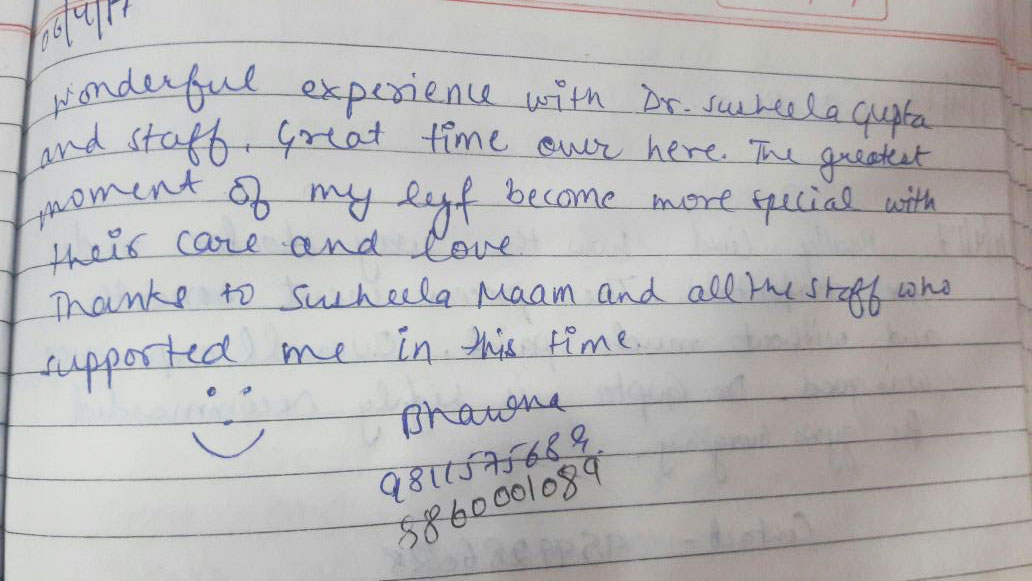 06/4/17
Wonderful experience with Dr. Susheela Gupta
and staff. Great time over here. The greatest
moment of my lyf become more special with
their care and love
Thanks to Susheela Maam and all the staff who
supported me in this time.
Bhawna
9811575689.
8860001089